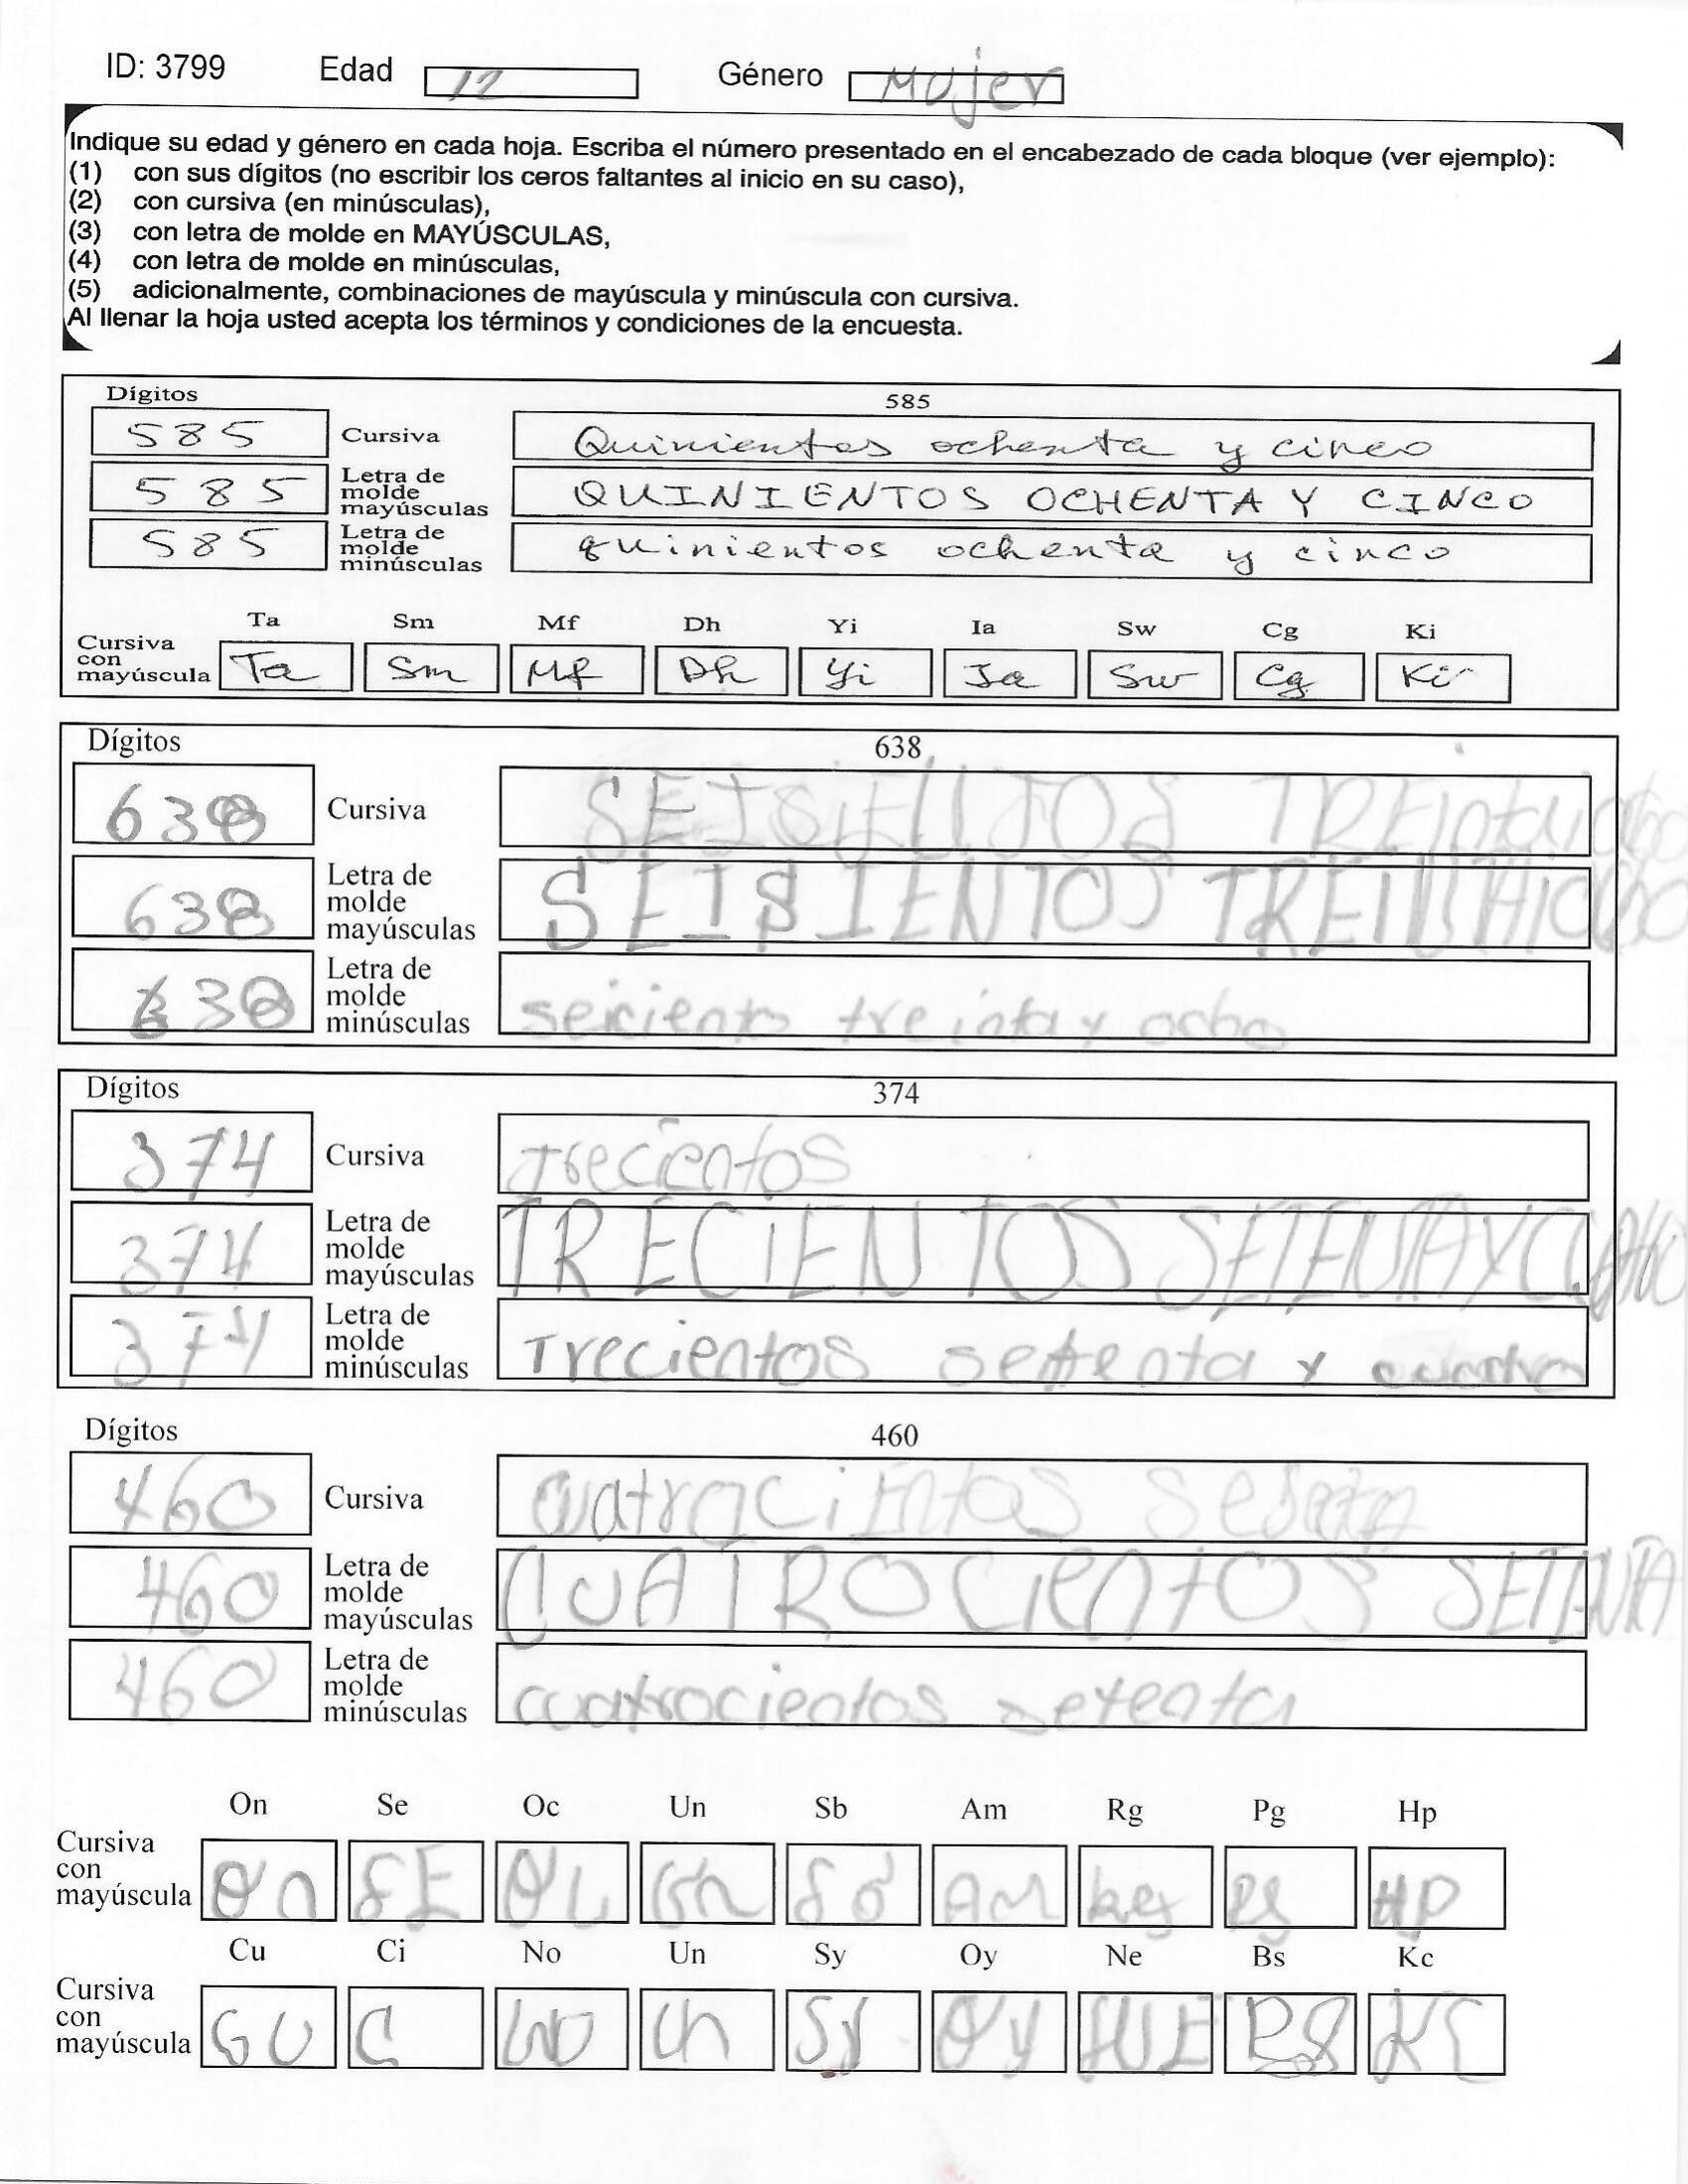 ID: 3799 Edad 12 Género Mujer
Indique su edad y género en cada hoja. Escriba el número presentado en el encabezado de cada bloque (ver ejemplo):
(1) con sus dígitos (no escribir los ceros faltantes al inicio en su caso),
(2) con cursiva (en minúsculas),
(3) con letra de molde en MAYÚSCULAS,
(4) con letra de molde en minúsculas,
(5) adicionalmente, combinaciones de mayúscula y minúscula con cursiva.
Al llenar la hoja usted acepta los términos y condiciones de la encuesta.
Dígitos 585
585 Cursiva Quinientos ochenta y cinco
585 Letra de molde mayúsculas QUINIENTOS OCHENTA Y CINCO
585 Letra de molde minúsculas quinientos ochenta y cinco
Ta Sm Mf Dh Yi Ia Sw Cg Ki
Cursiva con mayúscula Ta Sm Mf Dh Yi Ia Sw Cg Ki
Dígitos 638
638 Cursiva
638 Letra de molde mayúsculas SEISIENTOS
638 Letra de molde minúsculas treinta y ocho
Dígitos 374
374 Cursiva trecientos
374 Letra de molde mayúsculas TRECIENTOS SETENTA Y
374 Letra de molde minúsculas Trecientos setenta y
Dígitos 460
460 Cursiva
460 Letra de molde mayúsculas CUATROCientos SETENTA
460 Letra de molde minúsculas cuatrocientos setenta
On Se Oc Un Sb Am Rg Pg Hp
Cursiva con mayúscula On SE Un AM HP
Cu Ci No Un Sy Oy Ne Bs Kc
Cursiva con mayúscula NO Un Sy Oy NE KC